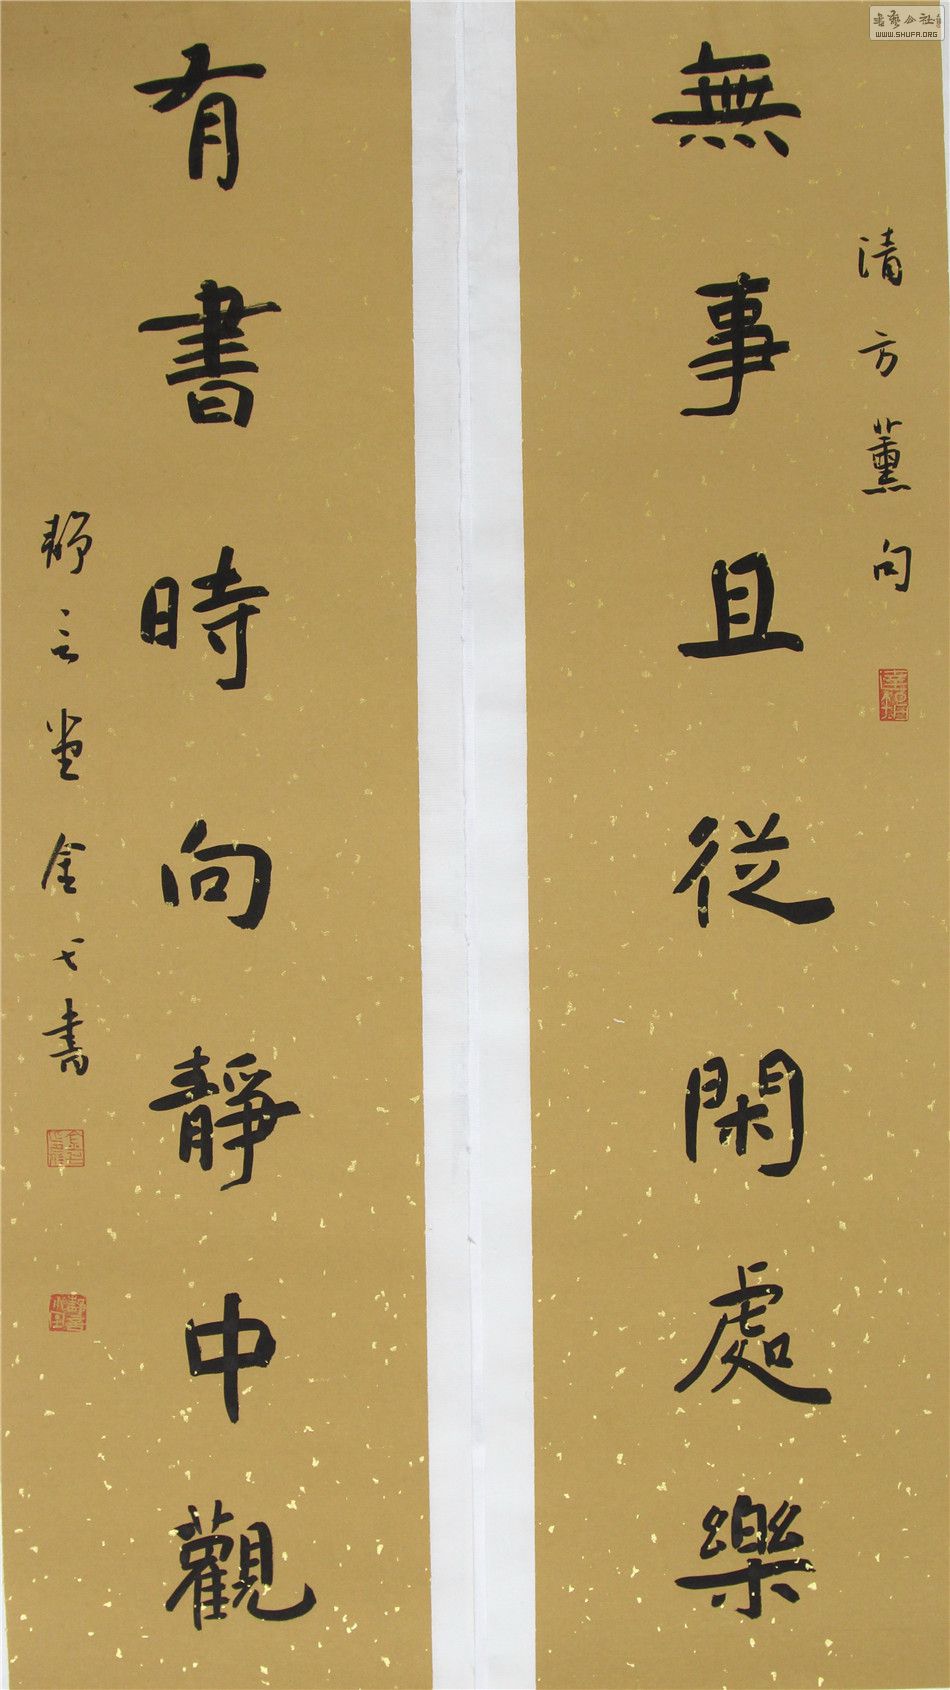 書藝公社
WWW.SHUFA.ORG
清方薰句
無事且從閑處樂
有書時向靜中觀
靜言堂金七書